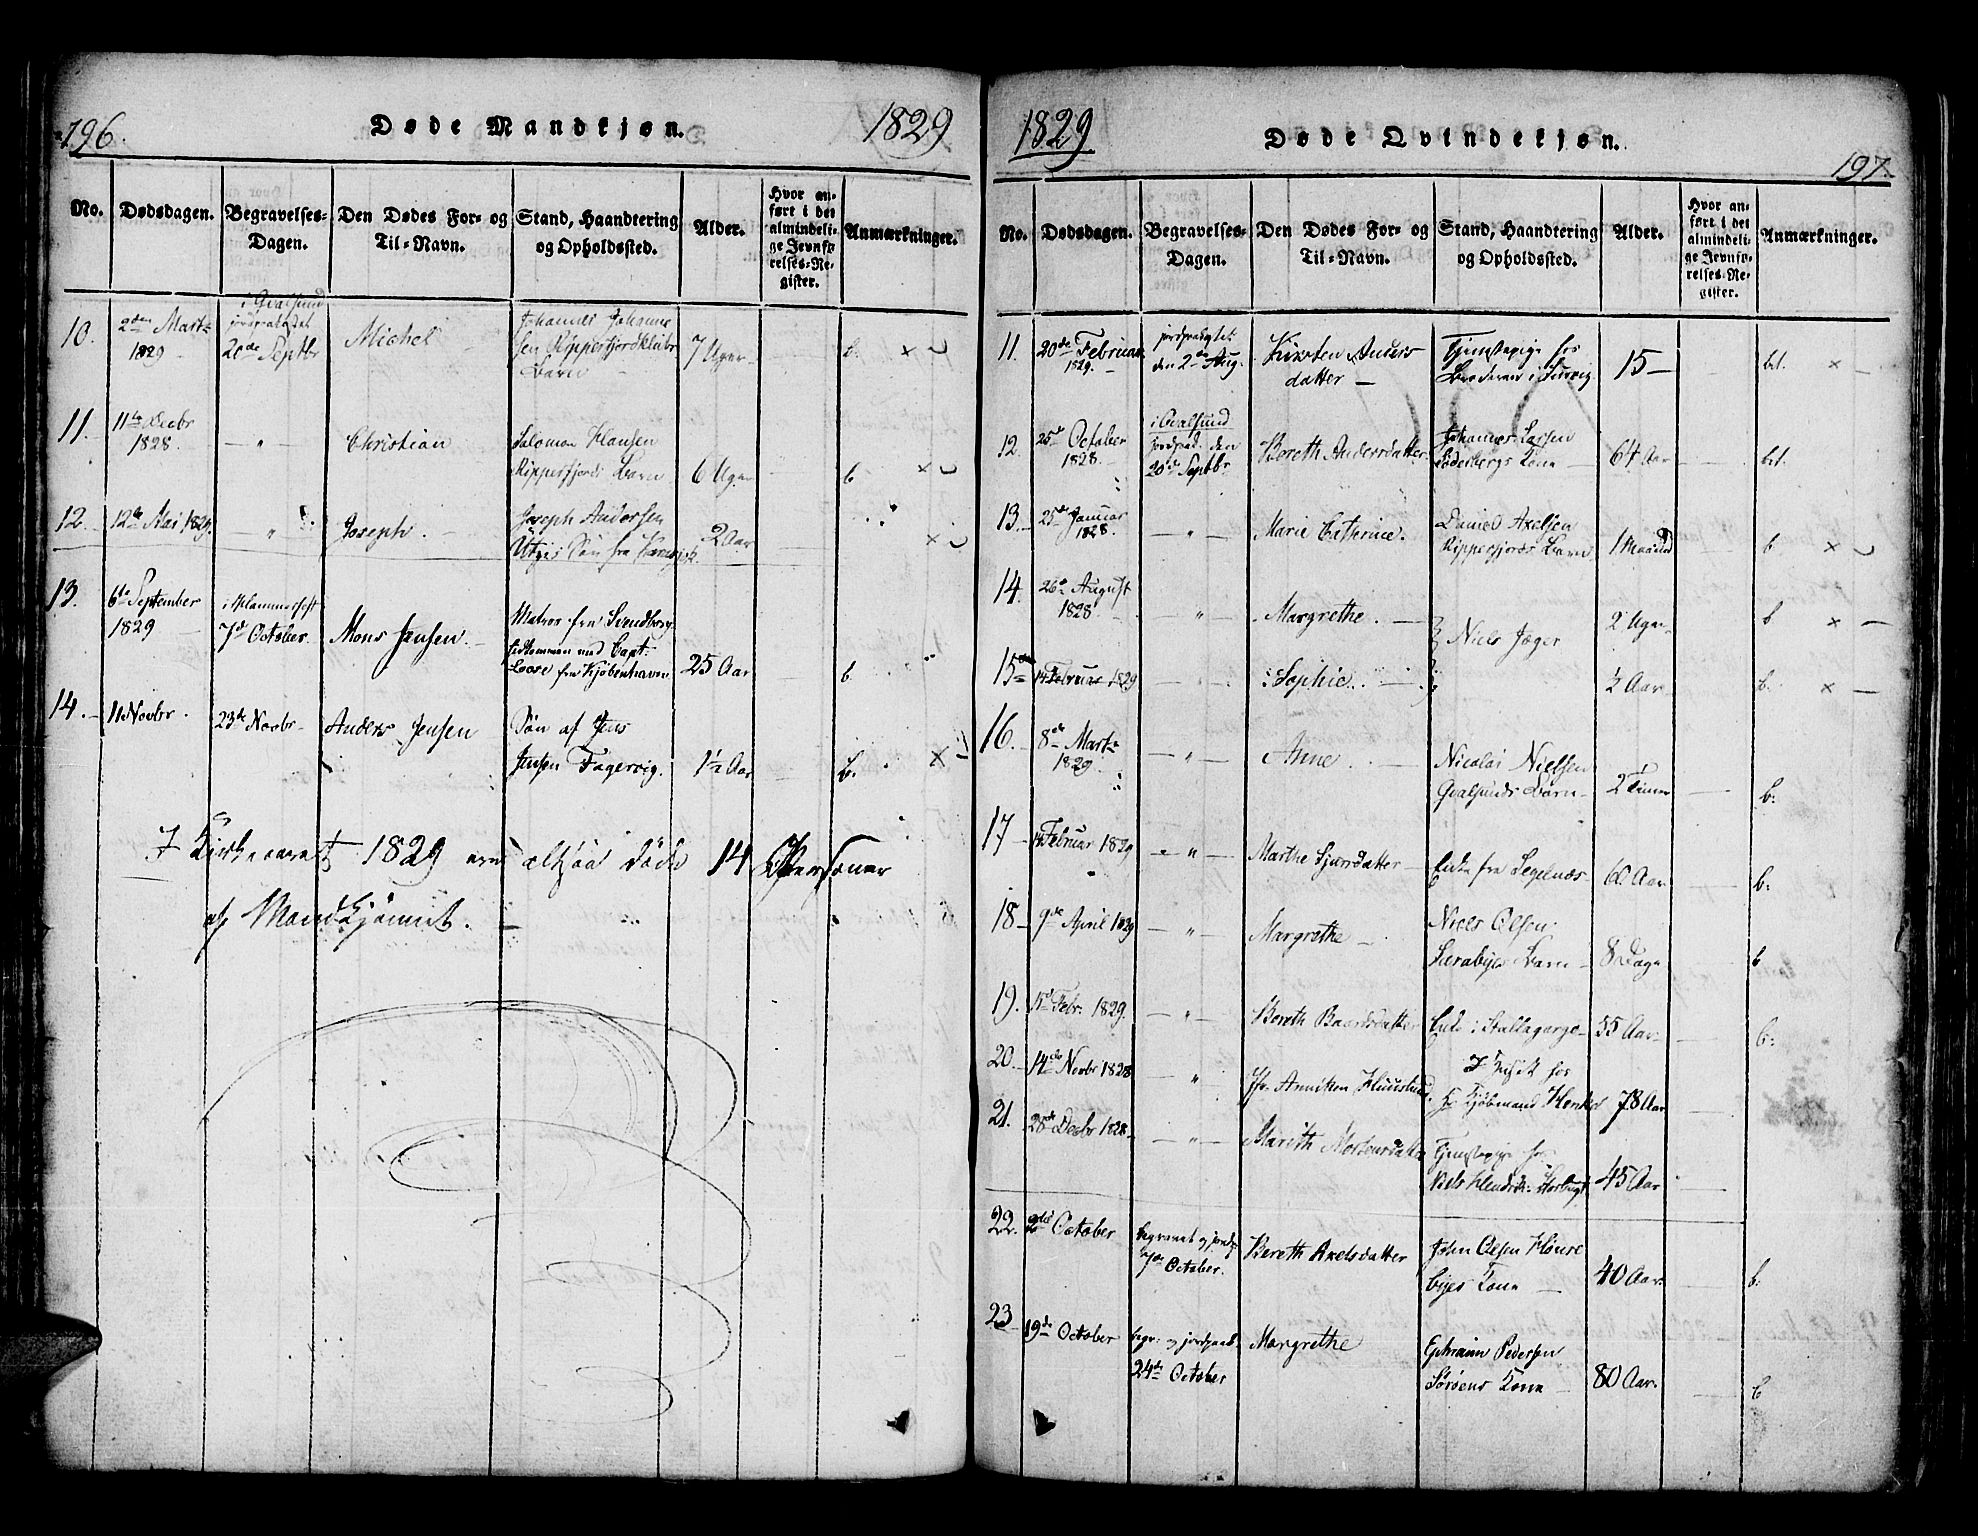 196.
Døde Mandkjøn.
1829
No.
Dødsdagen.
Begravelses-
Dagen.
Den Dødes For- og
Til-Navn.
Stand, Haandtering
og Opholdssted.
Alder.
Hvor an-
ført i det
almindeli-
ge Jevnfø-
relses-Re-
gister.
Anmærkninger.
10.
2den Marts
1829
i Qvalsund
jordpaakastet
20de Septbr
Michel
Johannes Johanne
sen Ripperfjord
Barn
7 Uger
b.
11.
11te Decbr
1828.
Christian
Salomon Hansen
Ripperfjords Barn
6 Uger
b
12.
12te Mai 1829.
Joseph
Joseph Andersen
Søn fra
2 Aar
13.
6te September
1829
i Hammerfest
7de October
Mons Jensen
Matros fra Svendborg
hidkommen med Capt:
fra Kjøbenhavn
25 Aar
b.
14.
11 Novbr.
23de Novbr
Anders Jensen
Søn af Jens
Jensen Fagervig.
1½ Aar
b.
I Kirkeaaret 1829 ere altsaa døde 14 Personer
af Mandkjønnet.
1829
Døde Qvindekjøn.
197.
No.
Dødsdagen.
Begravelses-
Dagen.
Den Dødes For- og
Til-Navn.
Stand, Haandtering
og Opholdssted.
Alder.
Hvor an-
ført i det
almindeli-
ge Jevnfø-
relses-Re-
gister.
Anmærkninger.
11.
20de Februar
1829.
jordpakastet
den 2de Aug.
Kirsten Anders
datter
Tjenstepige hos
Broderen i
15
bet.
12.
25de October
1828.
i Qvalsund
jordpaak. den
20de Septbr.
Bereth Andersdatter
Johannes Larsen
Kone
64 Aar
bet.
13.
25de Januar
1828.
Marie Cathrine.
Daniel Axelsen
Ripperfjords Barn
1 Maaned
b
14.
26de August
1828
Margrethe.
Niels Jæger
2 Uger
b
15
14 Februar 1829
Sophie.
½ Aar
b.
16.
8de Marts
1829
Anne
Nicolai Nielsen
Qvalsunds Barn
2 Timer
b:
17
14 Februar 1829
Marthe Sjursdatter
Enke fra
60 Aar
b:
18
9de April 1829
Margrethe
Niels Olsen
Saraby Barn
8 Dage
b
19.
15de Febr. 1829.
Bereth Baardsdatter
Enke i Stallogargo
55 Aar
b:
20.
14de Novbr 1828
Anniken
I hos
Hr Kjøbmand
78 Aar
21.
28de Decbr 1828
Marith Mortensdatter
Tjenstepige hos
Niels Hendrik: Storbugt
45 Aar
22.
2den October
begravet og jordp.
7de October.
Bereth Axelsdatter
John Olsen
byes Kone
40 Aar.
b.
23
19de October
begr: og jordpaak.
24de October
Margrethe
Ephraim Pedersen
Sørøens Kone
80 Aar.
b